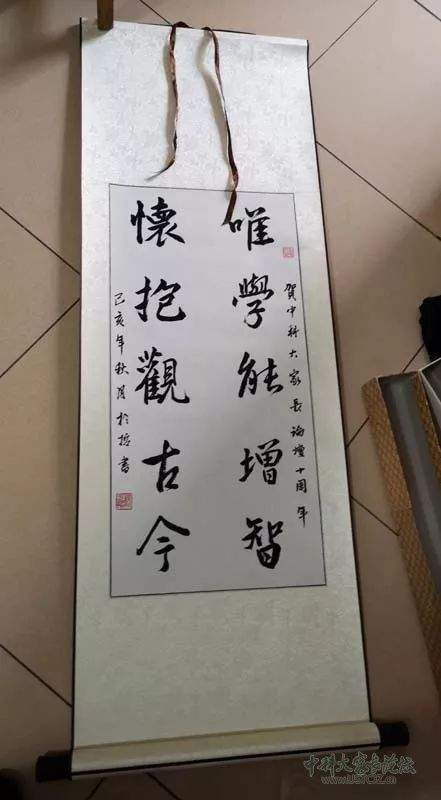 賀中科大家長論壇十周年
唯學能增智
懷抱觀古今
己亥年秋月於哲書
中科大家长论坛